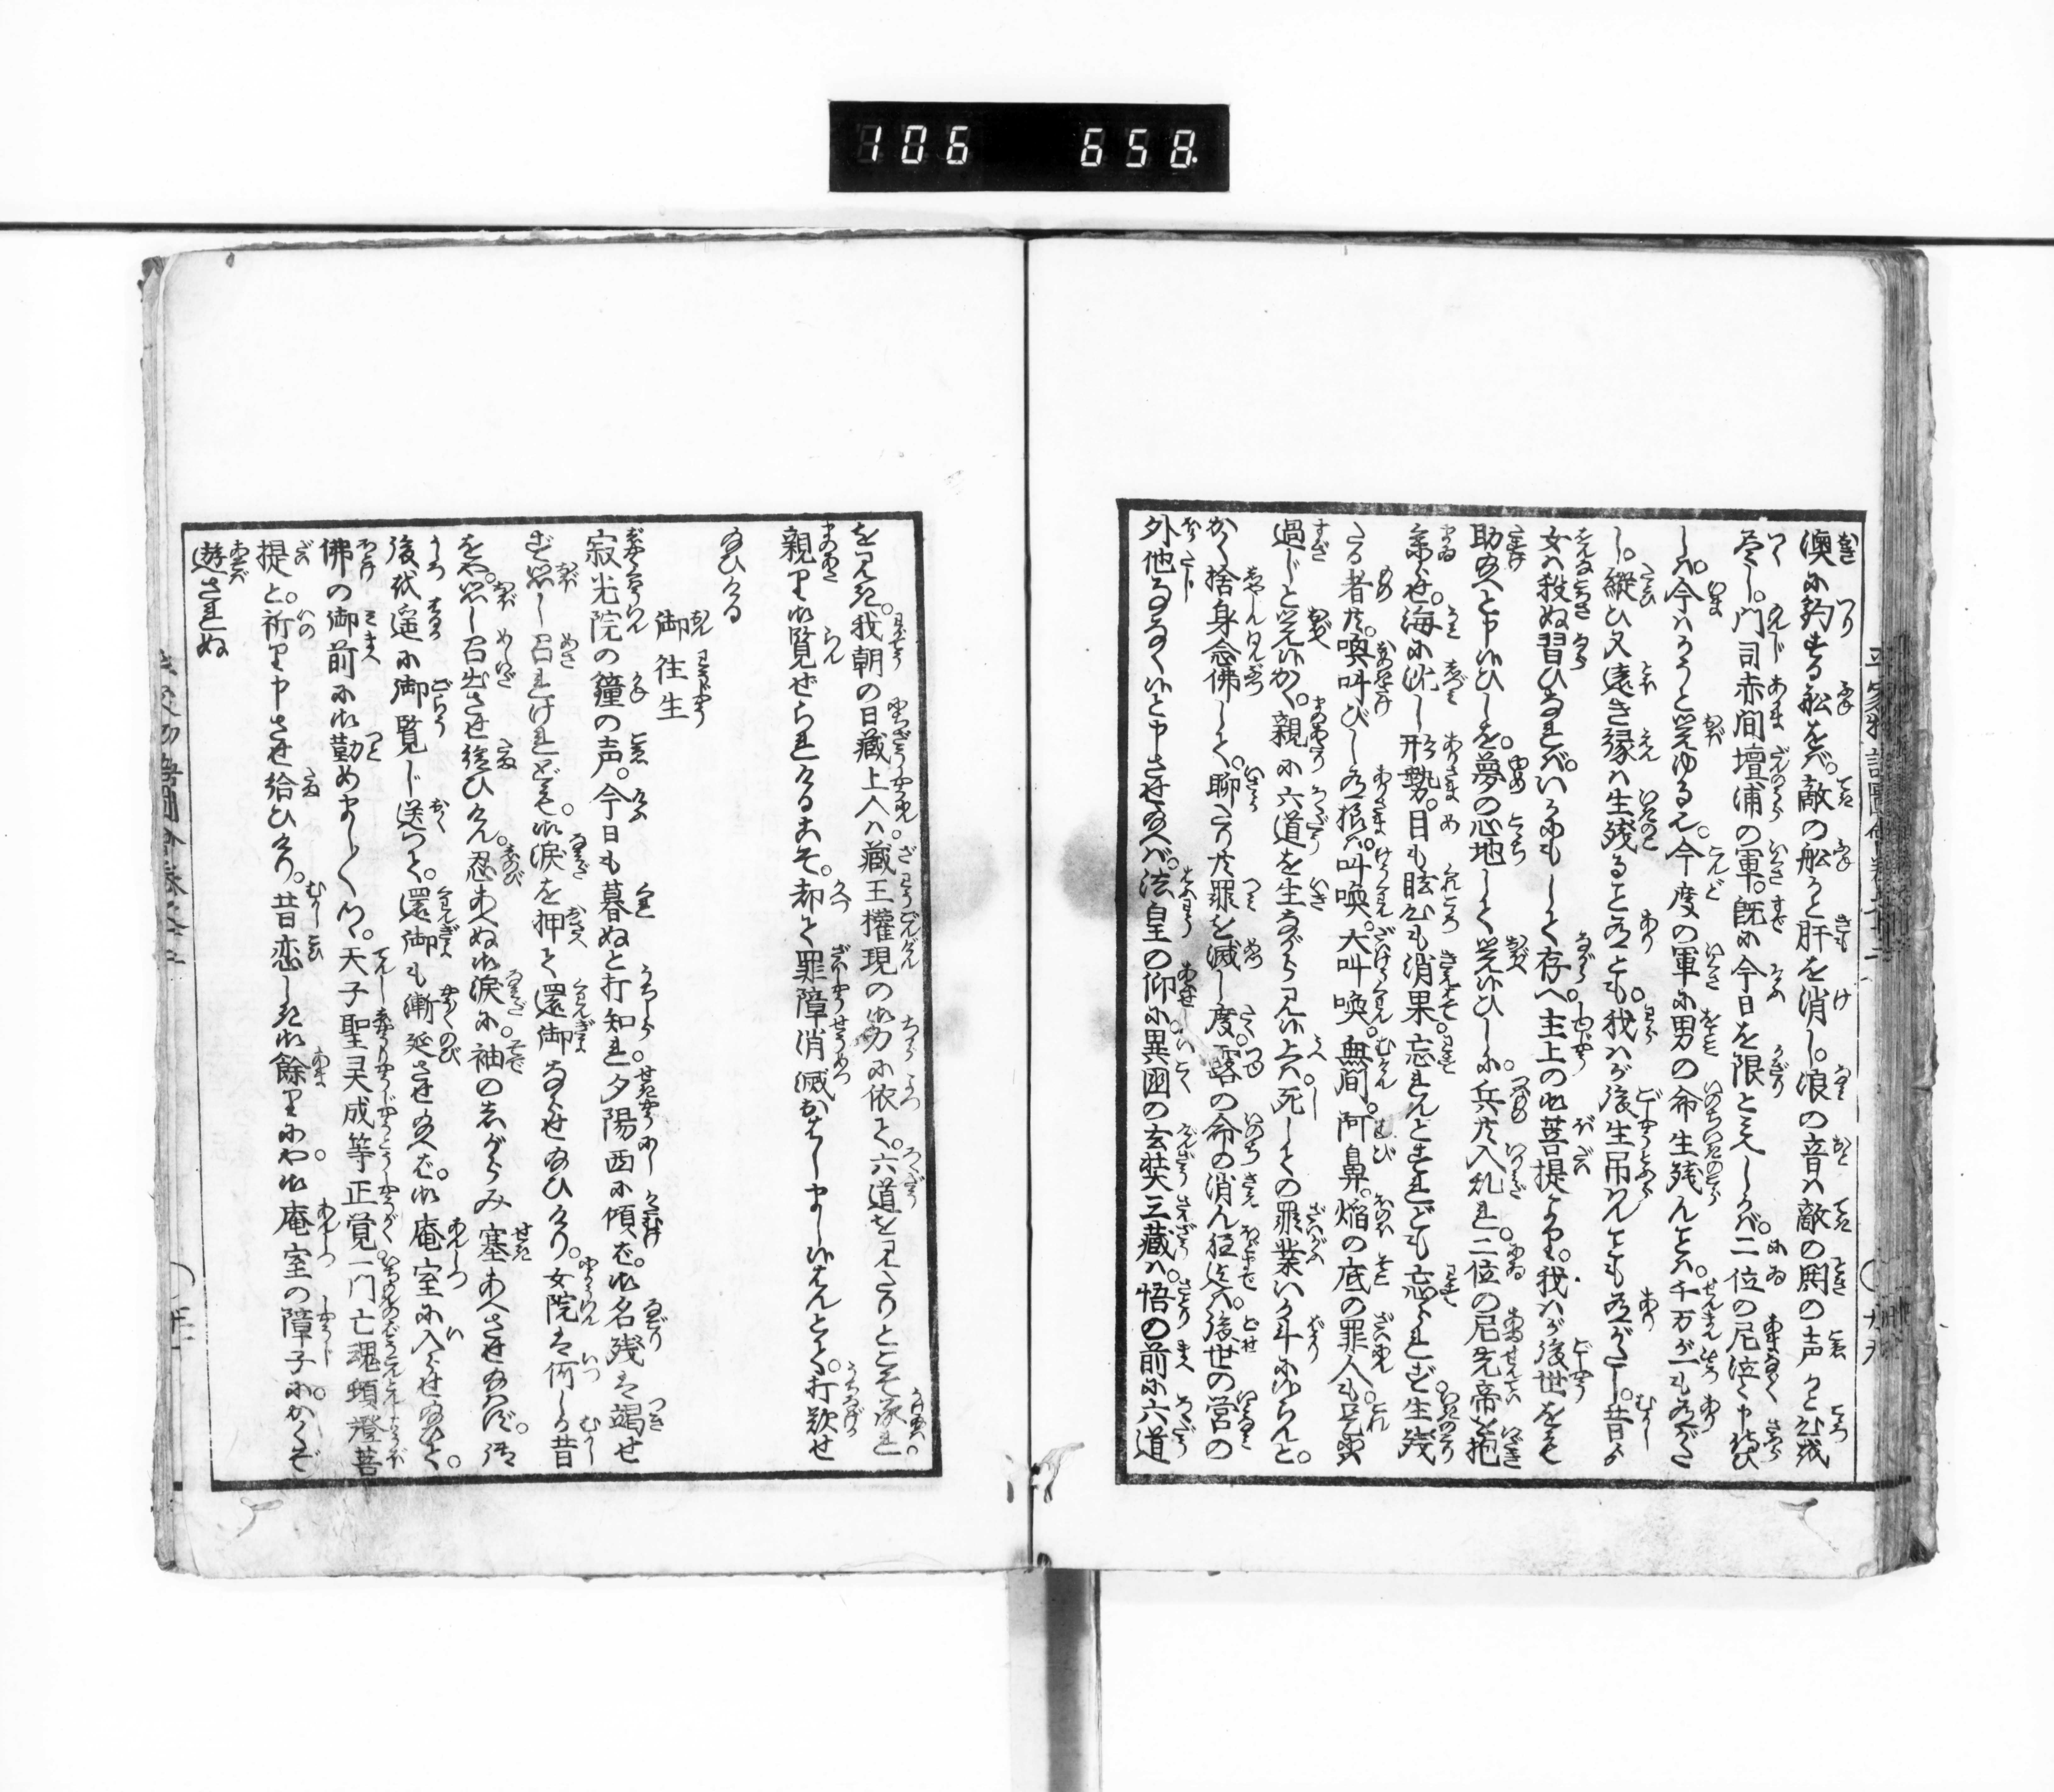 106 658
澳に釣する舩をば。敵の舩かと肝を消し。浪の音は敵の閧の声かと心を
尽し。門司赤間壇浦の軍。既に今日を限とみへしかば。二位の尼泣々申侍ひ
しは。今はかうと覚ゆる也。今度の軍に男の命生残んとは。千万が一も有がた
し。縦ひ又遠き縁は生残ること有とも。我らが後生吊んとも有がたし。昔より
女は殺ぬ習ひなれば。いかにもして存へ。主上の御菩提をも。我らが後世をも
助給へと申候ひしを。夢の心地して覚候ひしに。兵共入乱れ。二位の尼先帝を抱
参らせ。海に沈し形勢。目も眩心も消果。忘れんとすれども忘られず。生残
たる者共。喚叫びし有様は。叫喚。大叫喚。無間。阿鼻。焔の底の罪人も是には
過じと覚候か。親に六道を生ながら見候上は。死しての罪業いか斗に候らんと。
かく捨身念佛して。聊たり共罪を滅し度。露の命の消ん程迄は。後世の営の
外他なく候と申させ給へば。法皇の仰に異國の玄奘三藏は。悟の前に六道
を見き。我朝の日藏上人は。藏王權現の御力に依て。六道を見たりとこそ承れ。
親り御覧ぜられけるこそ。却て罪障消滅おはしまし候はんとて。打歎せ
給ひける
御往生
寂光院の鐘の声。今日も暮ぬと打知れ。夕陽西に傾ば。御名残は竭せ
ず思し召れけれども。御涙を押て還御ならせ給ひけり。女院は何しか昔
をや。思し召出させ給ひけん。忍あへぬ御涙に。袖のしがらみ塞あへさせ給はず。御
後を遥に御覧じ送つて。還御も漸延させ給へば。御庵室に入らせ給て。
佛の御前に御勤めまし〱つゝ。天子聖灵成等正覚。一門亡魂頓證菩
提と。祈り申させ給ひけり。昔恋しき御餘りにや。御庵室の障子に。かくぞ
遊されぬ